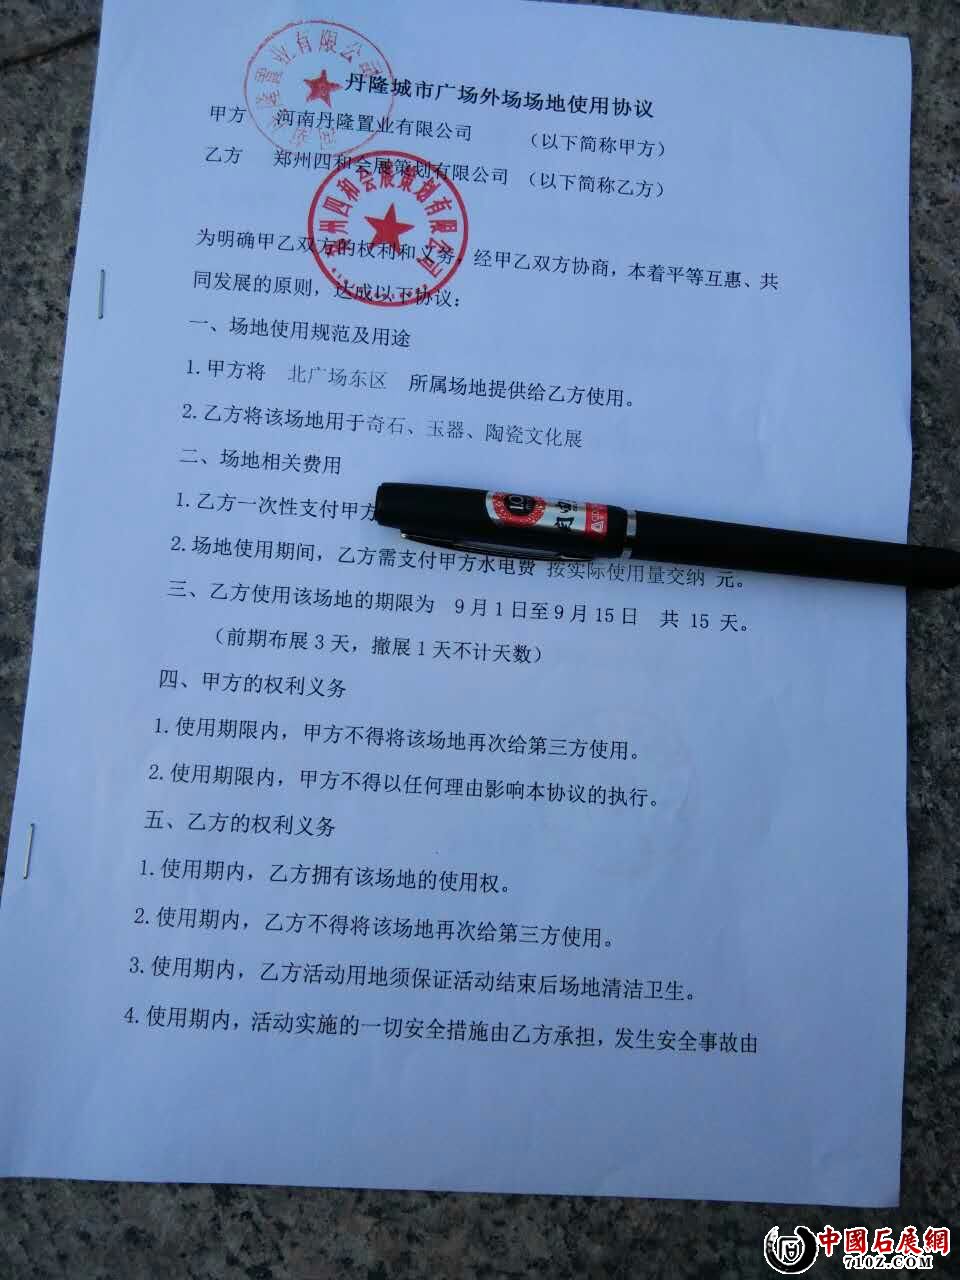 丹隆城市广场外场场地使用协议
甲方 河南丹隆置业有限公司 (以下简称甲方)
乙方 郑州四和会展策划有限公司 (以下简称乙方)
隆置业有限公司
郑州四和会展策划有限公司
为明确甲乙双方的权利和义务,经甲乙双方协商,本着平等互惠、共
同发展的原则,达成以下协议:
一、场地使用规范及用途
1.甲方将 北广场东区 所属场地提供给乙方使用。
2.乙方将该场地用于奇石、玉器、陶瓷文化展
二、场地相关费用
1.乙方一次性支付甲方
2.场地使用期间,乙方需支付甲方水电费 按实际使用量交纳 元。
三、乙方使用该场地的期限为 9月1日至9月15日 共 15 天。
(前期布展3天,撤展1天不计天数)
四、甲方的权利义务
1.使用期限内,甲方不得将该场地再次给第三方使用。
2.使用期限内,甲方不得以任何理由影响本协议的执行。
五、乙方的权利义务
1.使用期内,乙方拥有该场地的使用权。
2.使用期内,乙方不得将该场地再次给第三方使用。
3.使用期内,乙方活动用地须保证活动结束后场地清洁卫生。
4.使用期内,活动实施的一切安全措施由乙方承担,发生安全事故由
中國石展網
7102.COM